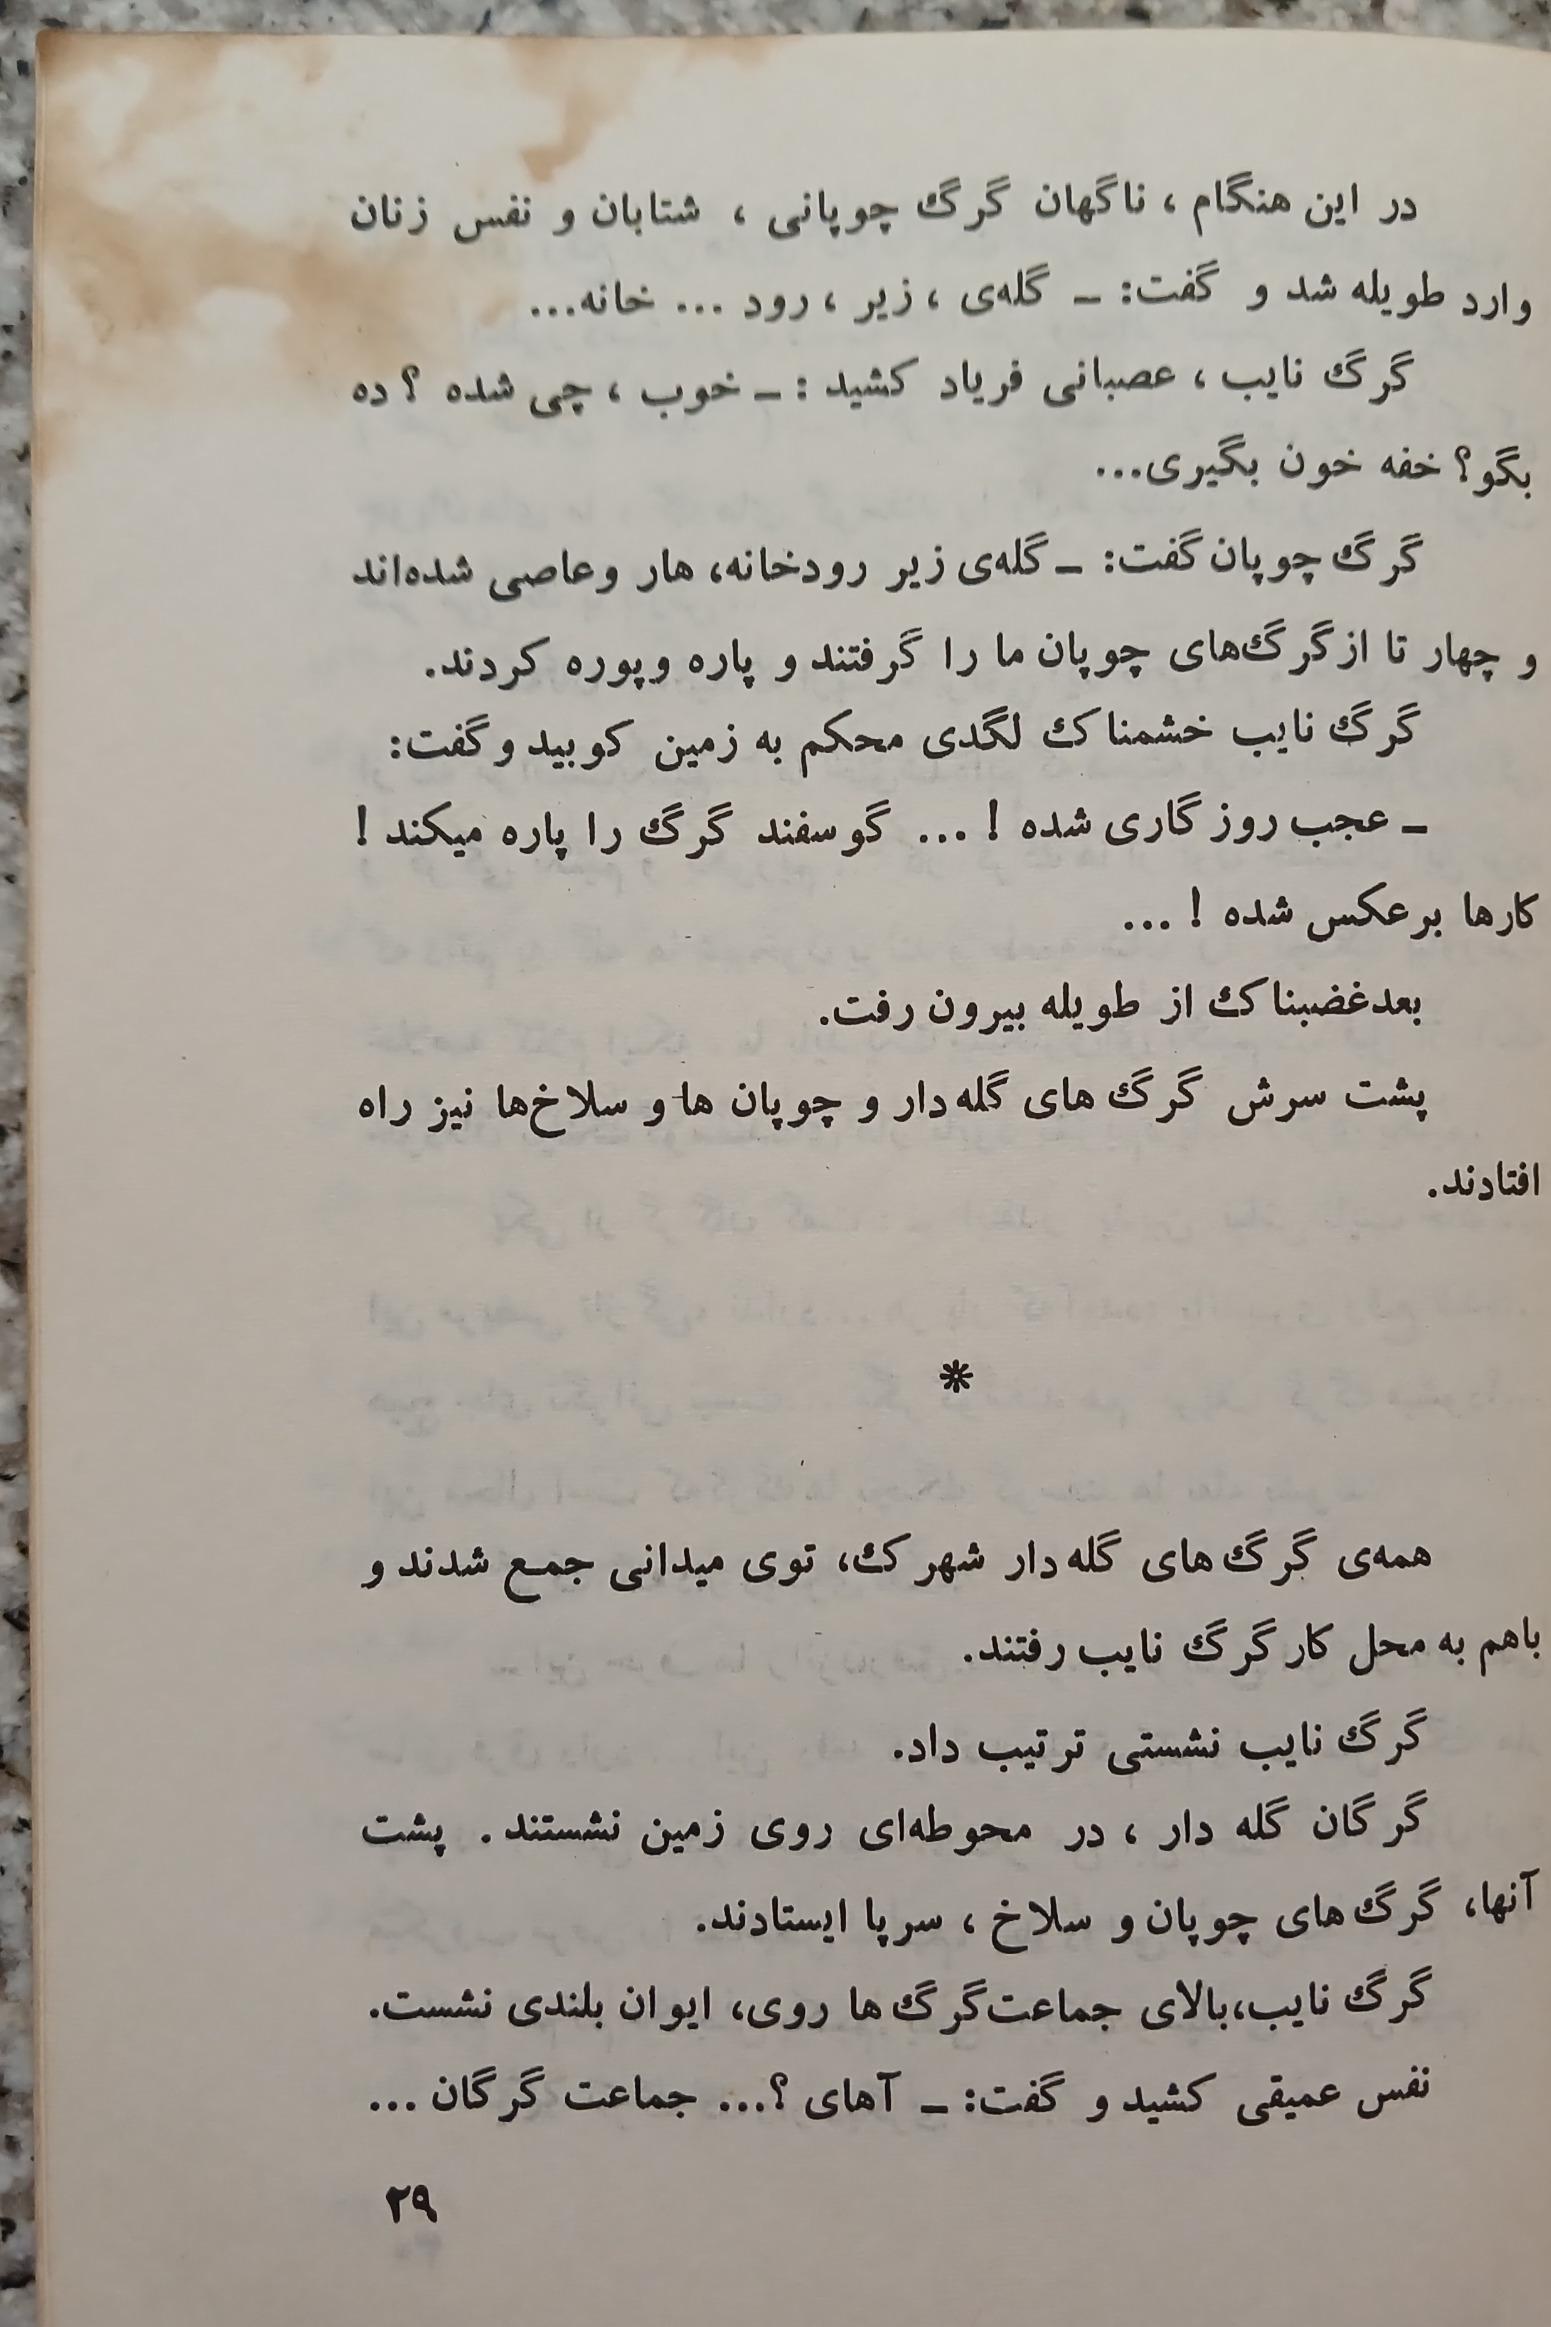 در این هنگام ، ناگهان گرگ چوپانی ، شتابان و نفس زنان
وارد طویله شد و گفت: ـ گله‌ی ، زیر ، رود ... خانه...
گرگ نایب ، عصبانی فریاد کشید : ـ خوب ، چی شده ؟ ده
بگو؟ خفه خون بگیری...
گرگ چوپان گفت: ـ گله‌ی زیر رودخانه، هار و عاصی شده‌اند
و چهار تا از گرگ‌های چوپان ما را گرفتند و پاره و پوره کردند.
گرگ نایب خشمناک لگدی محکم به زمین کوبید و گفت:
ـ عجب روزگاری شده ! ... گوسفند گرگ را پاره میکند !
کارها برعکس شده ! ...
بعد غضبناک از طویله بیرون رفت.
پشت سرش گرگ های گله دار و چوپان ها و سلاخ‌ها نیز راه
افتادند.
*
همه‌ی گرگ های گله دار شهرک، توی میدانی جمع شدند و
باهم به محل کار گرگ نایب رفتند.
گرگ نایب نشستی ترتیب داد.
گرگان گله دار ، در محوطه‌ای روی زمین نشستند . پشت
آنها، گرگ های چوپان و سلاخ ، سرپا ایستادند.
گرگ نایب، بالای جماعت گرگ ها روی، ایوان بلندی نشست.
نفس عمیقی کشید و گفت: ـ آهای ؟... جماعت گرگان ...
۲۹